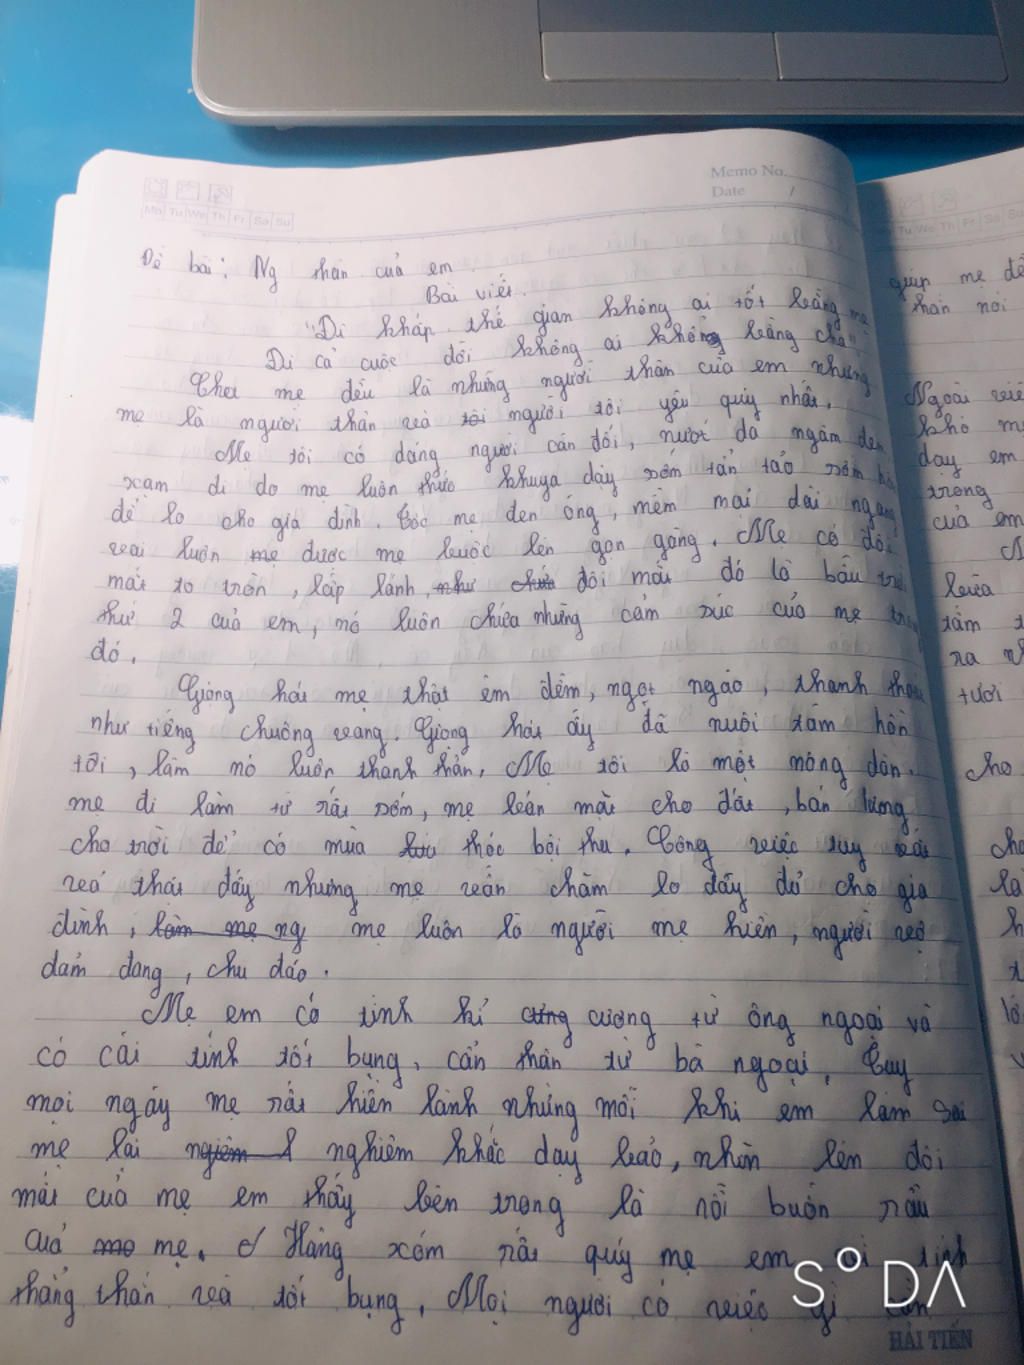 Memo No.
Date /
Mo Tu We Th Fr Sa Su
Đề bài: Ng thân của em.
Bài viết.
"Đi khắp thế gian không ai tốt bằng mẹ
Đi cả cuộc đời không ai khổ bằng cha"
Cha mẹ đều là những người thân của em nhưng
mẹ là người thân và tôi người tôi yêu quý nhất.
Mẹ tôi có dáng người cân đối, nướt da ngăm đen
xạm đi do mẹ luôn thức khuya dậy sớm tần tảo sớm
để lo cho gia đình. Tóc mẹ đen óng, mềm mại dài ngang
vai luôn mẹ được mẹ buộc lên gọn gàng. Mẹ có đôi
mắt to tròn, lấp lánh, như chứa đôi mắt đó là bầu trời
thứ 2 của em, nó luôn chứa những cảm xúc của mẹ trong
đó.
Giọng hát mẹ thật êm đềm, ngọt ngào, thanh thoát
như tiếng chuông vang. Giọng hát ấy đã nuôi tâm hồn
tôi, làm nó luôn thanh thản. Mẹ tôi là một nông dân.
mẹ đi làm từ rất sớm, mẹ bán mặt cho đất, bán lưng
cho trời để có mùa lúa thóc bội thu. Công việc tuy vất
vả thật đấy nhưng mẹ vẫn chăm lo đầy đủ cho gia
đình, làm mẹ ng mẹ luôn là người mẹ hiền, người vợ
đảm đang, chu đáo.
Mẹ em có tính khí cứng cương từ ông ngoại và
có cái tính tốt bụng, cẩn thận từ bà ngoại. Tuy
mọi ngày mẹ rất hiền lành nhưng mỗi khi em làm sai
mẹ lại ngiêm l nghiêm khắc dạy bảo, nhìn lên đôi
mắt của mẹ em thấy bên trong là nỗi buồn rầu
của mo mẹ. Hàng xóm rất quý mẹ em vì tính
thẳng thắn và tốt bụng. Mọi người có việc gì cần
HẢI TIẾN
SODA
Tu We Th Fr Sa Su
giúp mẹ đề
thân nói
Ngoài việ
khó m
dạy em
trong
của em
M
bữa
tắm t
ra nh
tươi
cho
ch
la
h
t
lớ
v